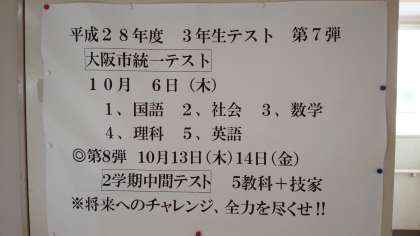 平成２８年度　３年生テスト　第７弾
大阪市統一テスト
１０月　６日（木）
１、国語　２、社会　３、数学
４、理科　５、英語
◎第8弾　10月13日(木)14日(金)
2学期中間テスト　5教科＋技家
※将来へのチャレンジ、全力を尽くせ!!